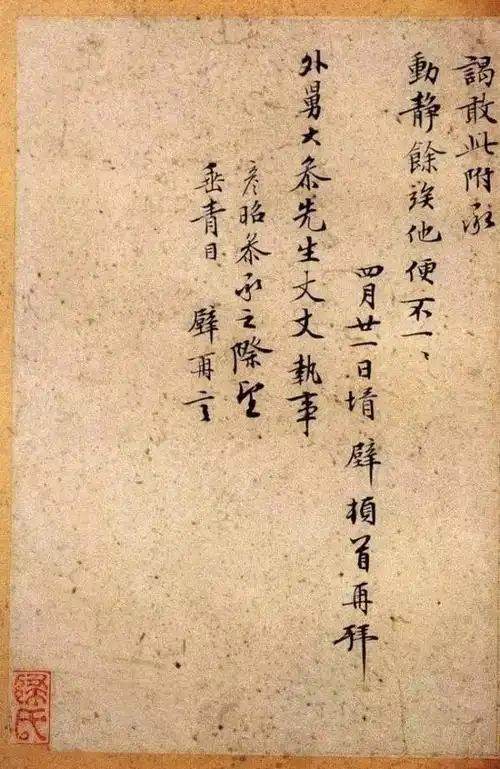 謁敢此附承
動静餘竢他便不一、
四月廿一日壻 璧頓首再拜
外舅大叅先生丈丈執事
彦昭叅承之際望
垂青目 璧再言